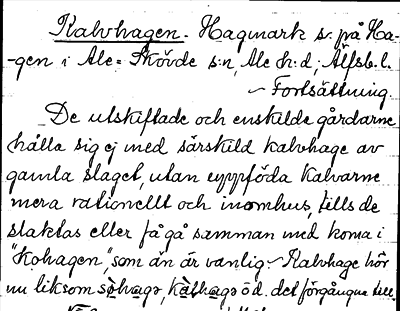 Kalvhagen. Hagmark s. på Ha-
-gen i Ale=Skövde s:n, Ale h:d; Älfsb. l.
Fortsättning.
De utskiftade och enskilda gårdarne
hålla sig ej med särskild kalvhage av
gamla slaget, utan uppföda kalvarne
mera rationellt och inomhus, tills de
slaktas eller få gå samman med korna i
"Kohagen", som än är vanlig. Kalvhage hör
nu liksom och det förgångna till.